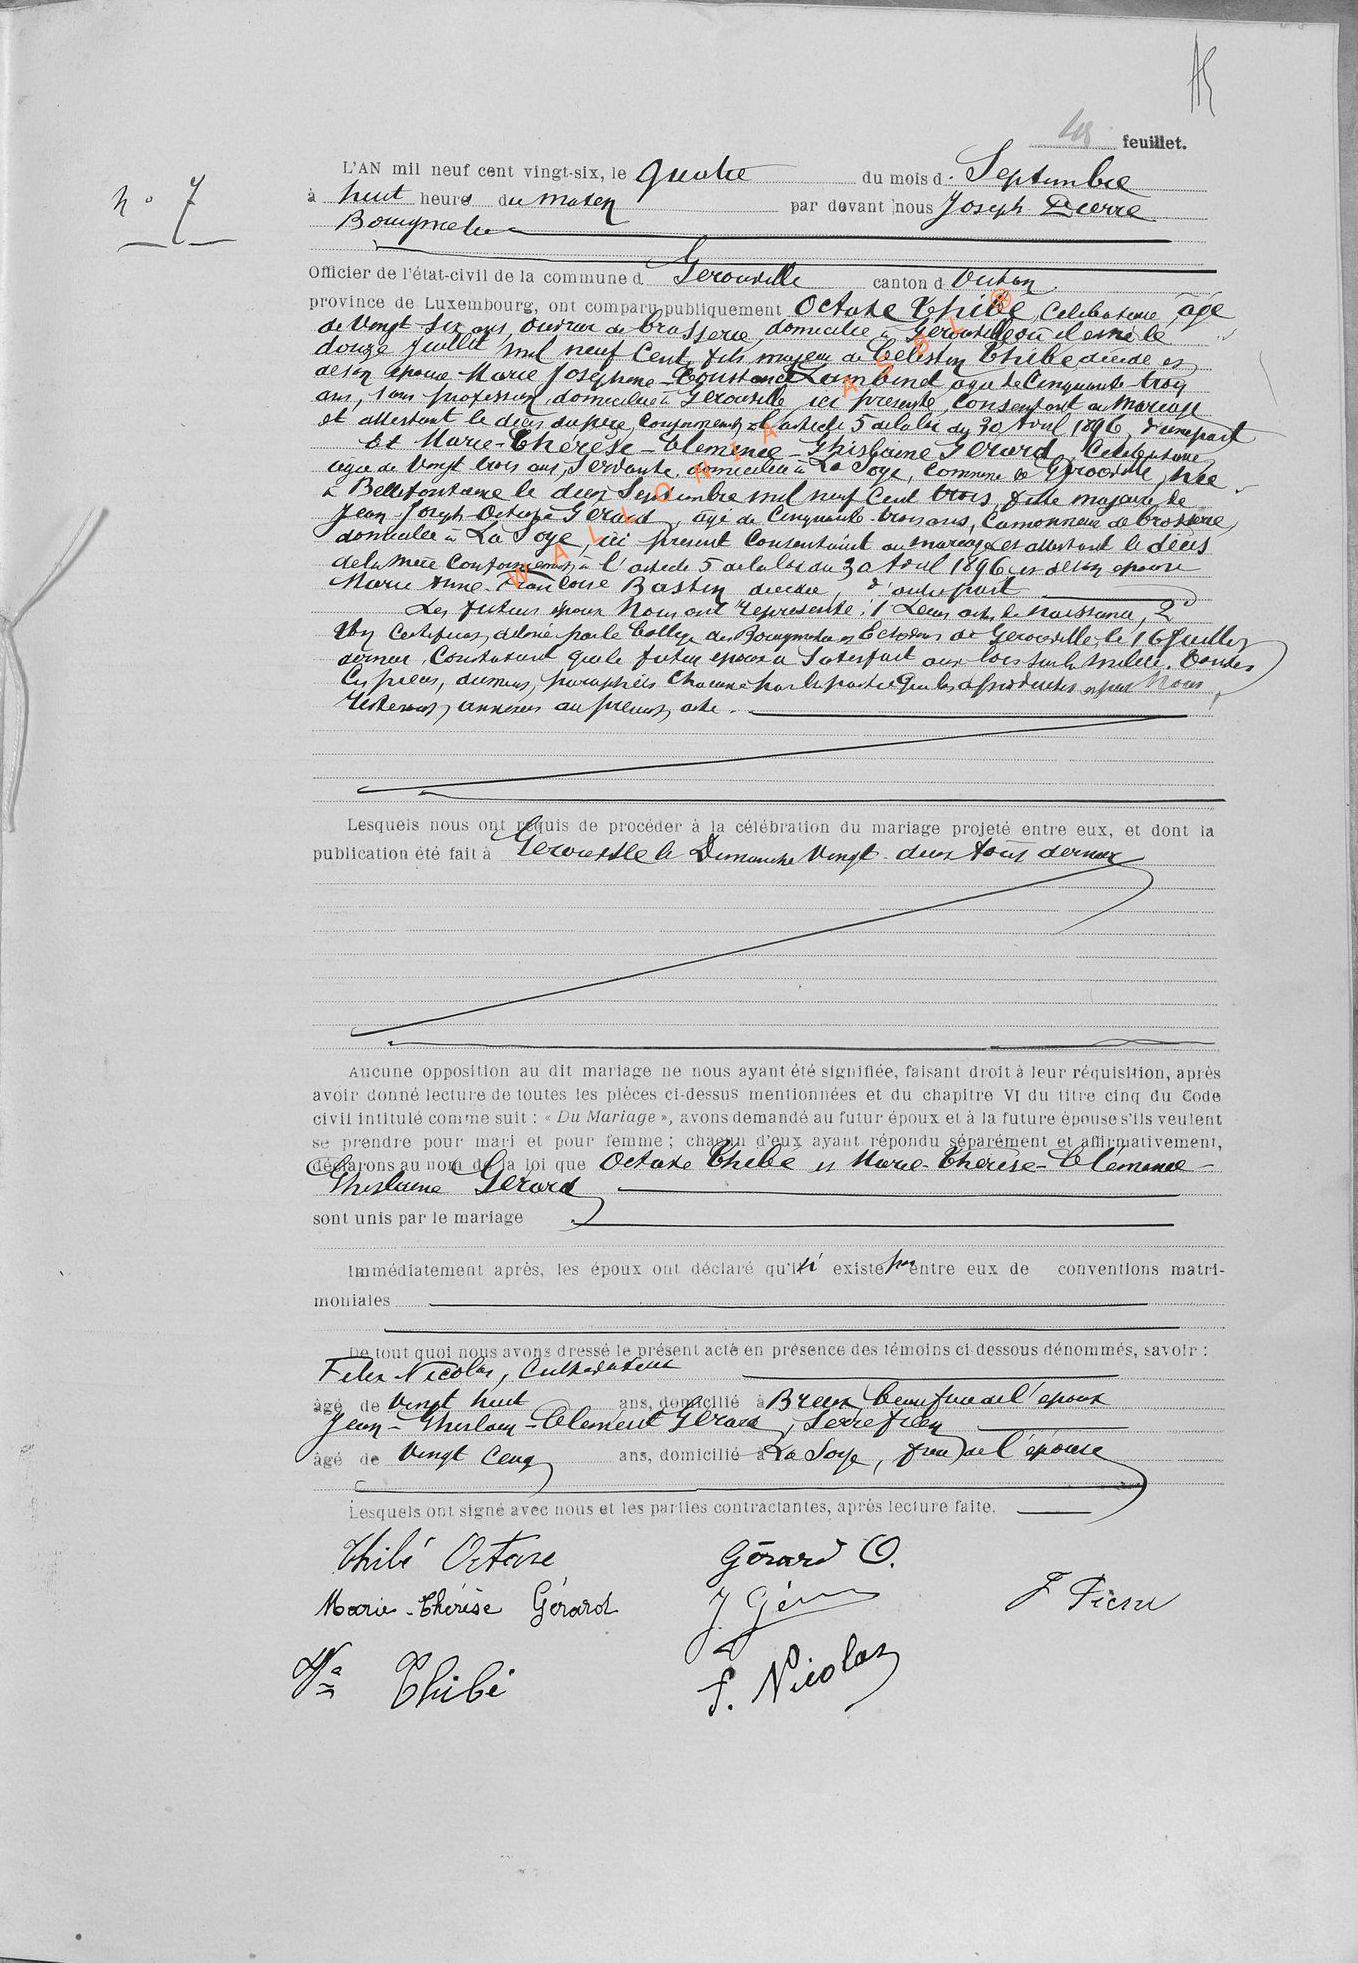 48 feuillet.
n° 7
L'AN mil neuf cent vingt-six, le quatre du mois d. Septembre
à huit heures du matin par devant nous Joseph Pierre
Bourgmestre
Officier de l'état-civil de la commune d Gerouville canton d Virton
province de Luxembourg, ont comparu publiquement Octave Thibé, Célibataire, âgé
de vingt six ans, ouvrier de brasserie, domicilié à Gerouville où il est né le
douze Juillet mil neuf Cent, fils majeur de Célestin Thibé décédé et
de son épouse Marie Joséphine-Constance Lambinet âgée de Cinquante trois
ans, sans profession, domiciliée à Gerouville, ici présente, consentant au mariage
et attestant le décès du père, conformément à l'article 5 de la loi du 30 Avril 1896, d'une part
Et Marie-Thérèse-Clémence-Ghislaine Gérard, Célibataire,
âgée de vingt trois ans, Servante, domiciliée à La Soye, Commune de Gérouville, née
à Bellefontaine le deux Septembre mil neuf Cent trois, fille majeure de
Jean Joseph Octave Gérard, âgé de Cinquante trois ans, Camionneur de brasserie,
domicilié à La Soye, ici présent Consentant au mariage et attestant le décès
de la mère Conformément à l'article 5 de la loi du 30 Avril 1896 et de son épouse
Marie Anne-Françoise Bastin décédée, d'autre part
Les futurs époux Nous ont représenté : 1° Leurs actes de naissance, 2°
Un Certificat délivré par le Collège des Bourgmestre et Echevins de Gerouville le 16 Juillet
dernier, Constatant que le futur époux a Satisfait aux lois sur la milice. Toutes
Ces pièces, dûment paraphées Chacune par la partie qui les a produites et par Nous
resteront annexées au présent acte.
Lesquels nous ont requis de procéder à la célébration du mariage projeté entre eux, et dont la
publication été fait à Gerouville le Dimanche Vingt-deux Août dernier
Aucune opposition au dit mariage ne nous ayant été signifiée, faisant droit à leur réquisition, après
avoir donné lecture de toutes les pièces ci-dessus mentionnées et du chapitre VI du titre cinq du Code
civil intitulé comme suit : « Du Mariage », avons demandé au futur époux et à la future épouse s'ils veulent
se prendre pour mari et pour femme ; chacun d'eux ayant répondu séparément et affirmativement,
déclarons au nom de la loi que Octave Thibé et Marie-Thérèse-Clémence-
Ghislaine Gérard
sont unis par le mariage
Immédiatement après, les époux ont déclaré qu'il n'existe pas entre eux de conventions matri-
moniales
De tout quoi nous avons dressé le présent acte en présence des témoins ci-dessous dénommés, savoir :
Félix Nicolas, Cultivateur
âgé de vingt huit ans, domicilié à Breux beau frère de l'époux
Jean-Ghislain-Clément Gérard, Serre frein
âgé de vingt cinq ans, domicilié à La Soye, frère de l'épouse
Lesquels ont signé avec nous et les parties contractantes, après lecture faite.
Thibé Octave Gérard O.
Marie-Thérèse Gérard J. Gér J Pierre
Vve Thibé F. Nicolas
WALLONIA ASBL